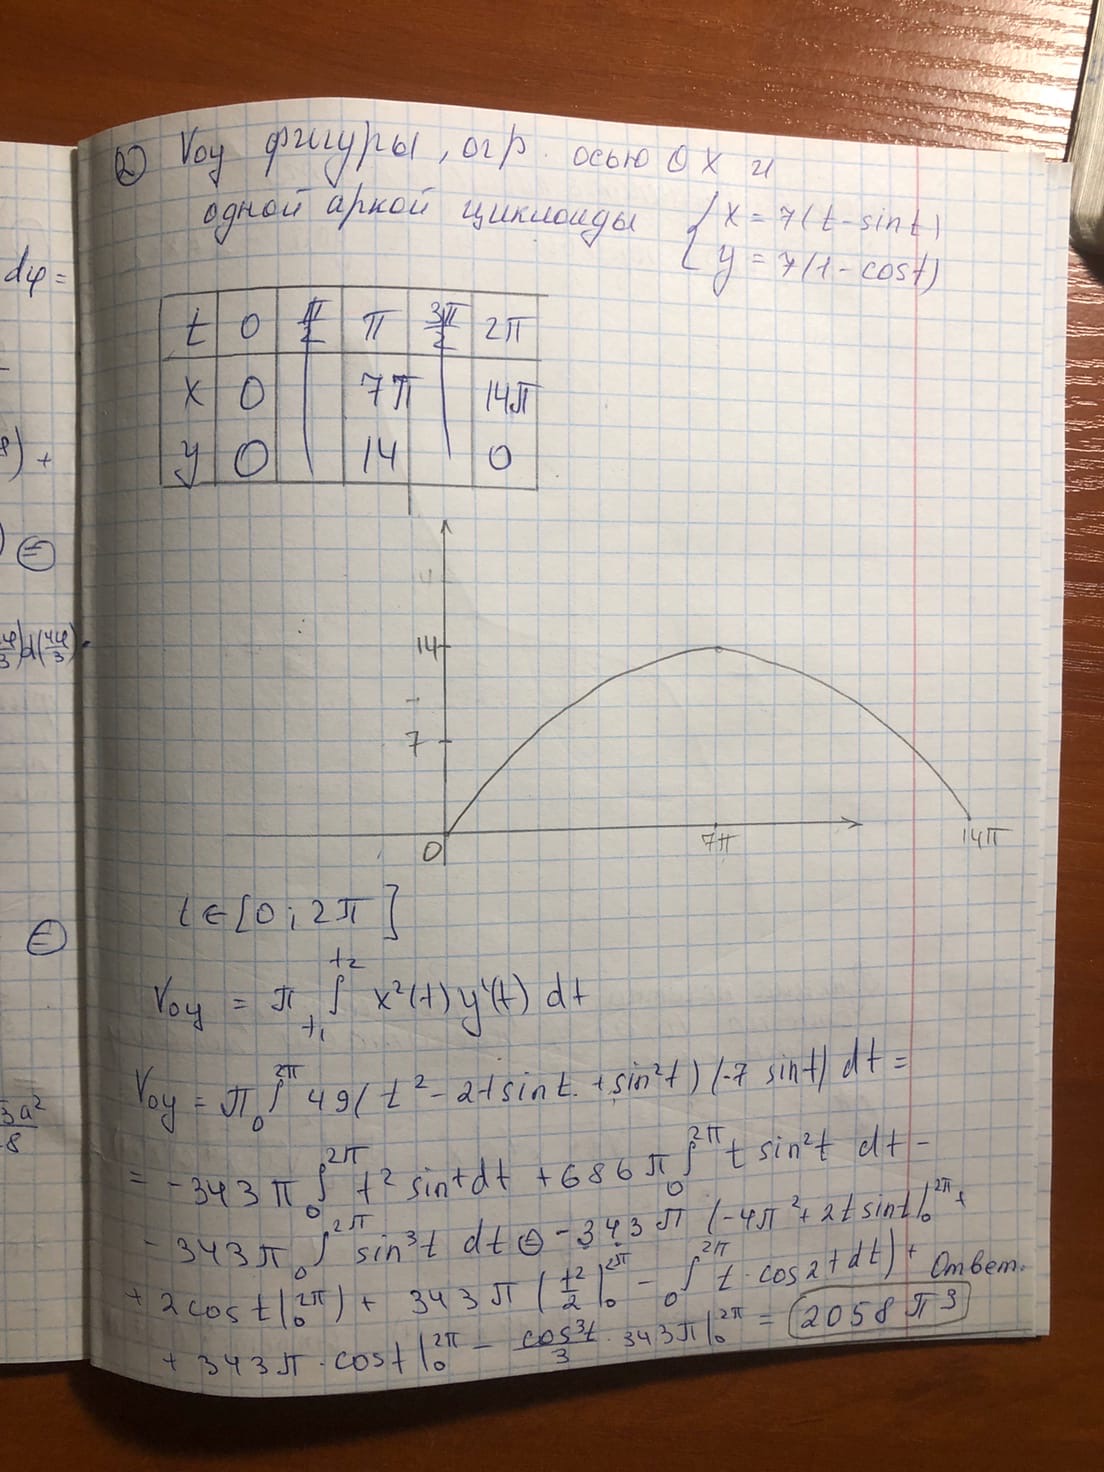 2) Vоу фигуры, огр. осью ОХ и
одной аркой циклоиды { x = 7(t - sint)
y = 7(1 - cost)
t 0 π/2 π 3π/2 2π
x 0 7π 14π
y 0 14 0
14
7
0 7π 14π
t ∈ [0; 2π]
Voy = π ∫ t₁ t₂ x²(t) y'(t) dt
Voy = π ₀∫^2π 49(t² - 2tsint + sin²t)(-7 sint) dt =
= -343π ₀∫^2π t² sint dt + 686π ₀∫^2π t sin²t dt -
- 343π ₀∫^2π sin³t dt ⊜ -343π (-4π² + 2tsint|₀^2π +
+ 2cost|₀^2π) + 343π (t²/2|₀^2π - ₀∫^2π t·cos2t dt) + Ответ.
+ 343π·cost|₀^2π - cos³t/3 · 343π|₀^2π = 2058π³
dφ =
8) +
) ⊜
4φ/3)d(4φ/3)·
⊜
3a²/8